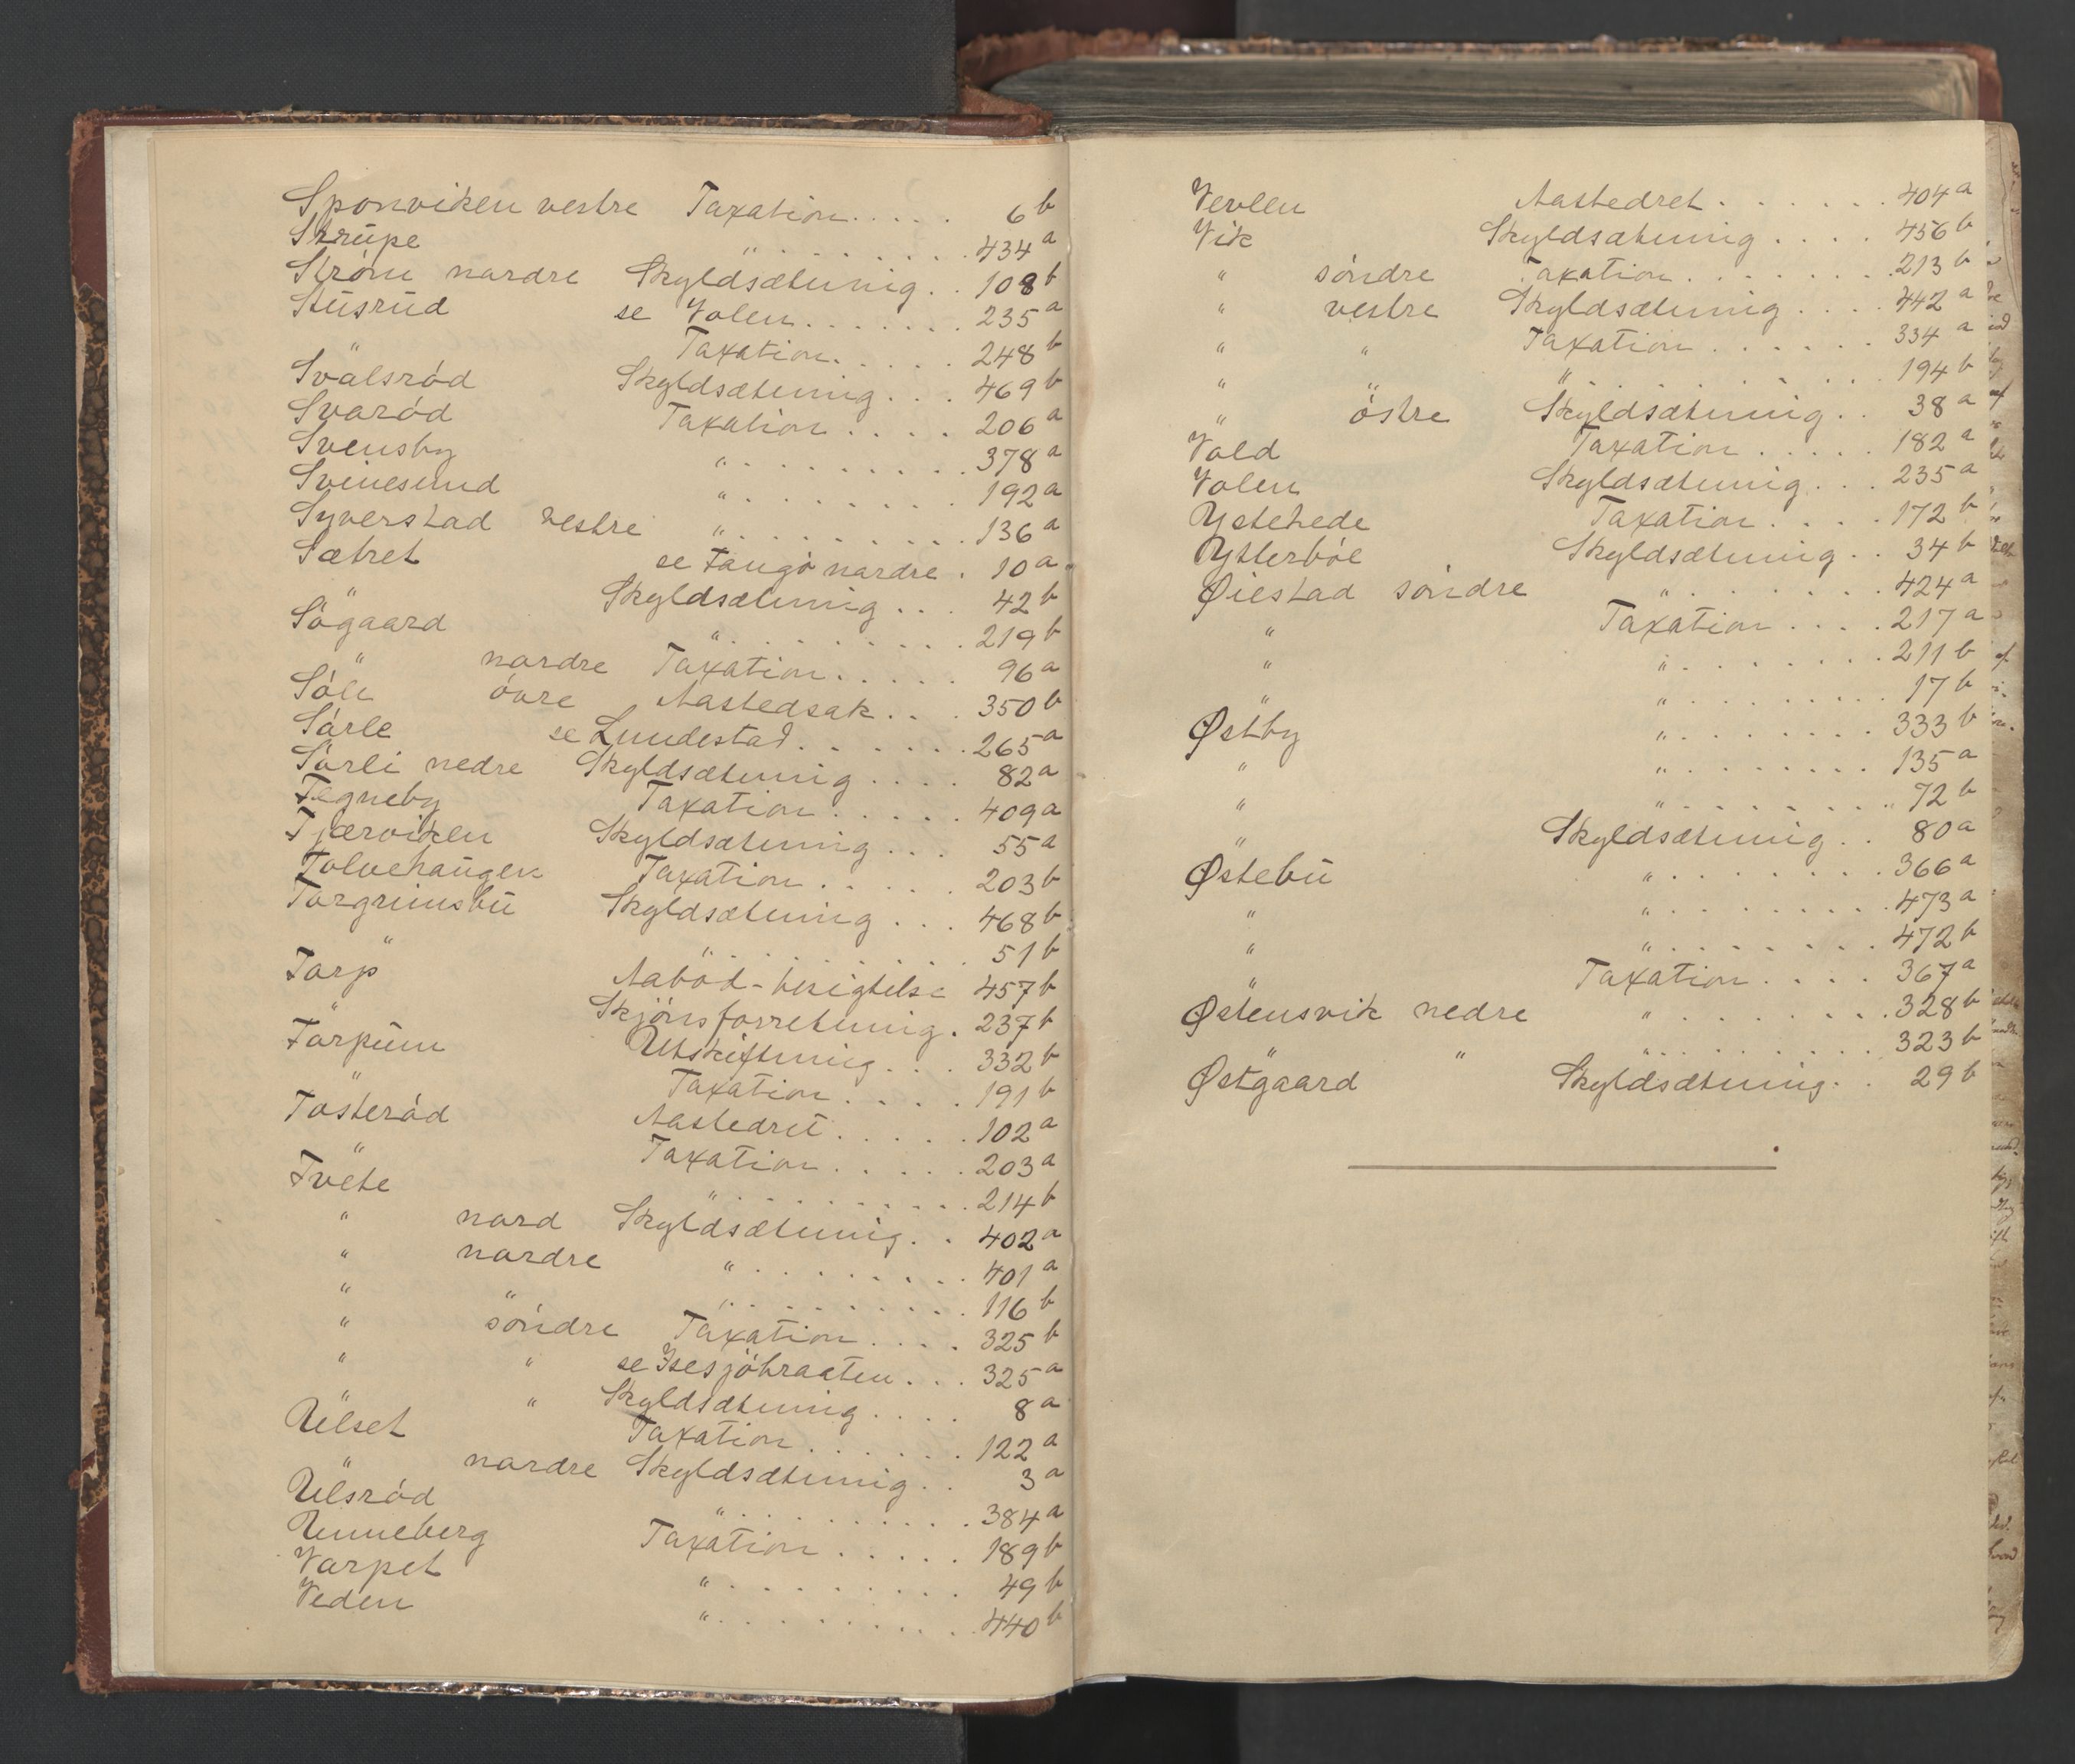 Sponviken vestre Taxation..... 6 b
Strupe " ........ 434 a
Ström nordre Skyldsætning.. 108 b
Stusrud se Volen....... 235 a
" Taxation...... 248 b
Svalsröd Skyldsætning... 469 b
Svaröd Taxation.... 206 a
Svensby " ......... 378 a
Svinesund " ........ 192 a
Syverstad vestre " ......... 136 a
Sætret se Tangö nordre. 10 a
" Skyldsætning... 42 b
Sögaard " ......... 219 b
" nordre Taxation..... 96 a
Söle övre Aastedsak... 350 b
Sörle se Lundestad...... 265 a
Sörli nedre Skyldsætning.... 82 a
Tegneby Taxation..... 409 a
Tjærviken Skyldsætning... 55 a
Tolvehaugen Taxation..... 203 b
Torgrimsbu Skyldsætning... 468 b
" " ......... 51 b
Torp Aabod-besigtelse 457 b
" Skjönsforretning. 237 b
Torpum Utskiftning... 332 b
" Taxation.... 191 b
Tosteröd Aastedret..... 102 a
" Taxation..... 203 a
Tvete " ......... 214 b
" nord Skyldsætning.. 402 a
" nordre " ........ 401 a
" " " ......... 116 b
" söndre Taxation.... 325 b
" " se Isesjöbraaten... 325 a
" " Skyldsætning.... 8 a
Ulset Taxation...... 122 a
" nordre Skyldsætning.. 3 a
Ulsröd " ......... 384 a
Unneberg Taxation..... 189 b
Varpet " ......... 49 b
Veden " ......... 440 b
Vevlen Aastedret...... 404 a
Vik Skyldsætning.... 456 b
" söndre Taxation....... 213 b
" vestre Skyldsætning.... 442 a
" " Taxation...... 334 a
" " " ......... 194 b
" östre Skyldsætning.. 38 a
Vold Taxation..... 182 a
Volen Skyldsætning... 235 a
Ystehede Taxation.... 172 b
Ytterböe Skyldsætning.. 34 b
Øiestad söndre " ....... 424 a
" Taxation.... 217 a
" " ....... 211 b
" " ........ 17 b
Østby " ........ 333 b
" " ....... 135 a
" " ........ 72 b
" Skyldsætning.. 80 a
Østebu " ........ 366 a
" " ........ 473 a
" " ....... 472 b
" Taxation.... 367 a
Østensvik nedre " ....... 328 b
" " " ........ 323 b
Østgaard Skyldsætning.. 29 b